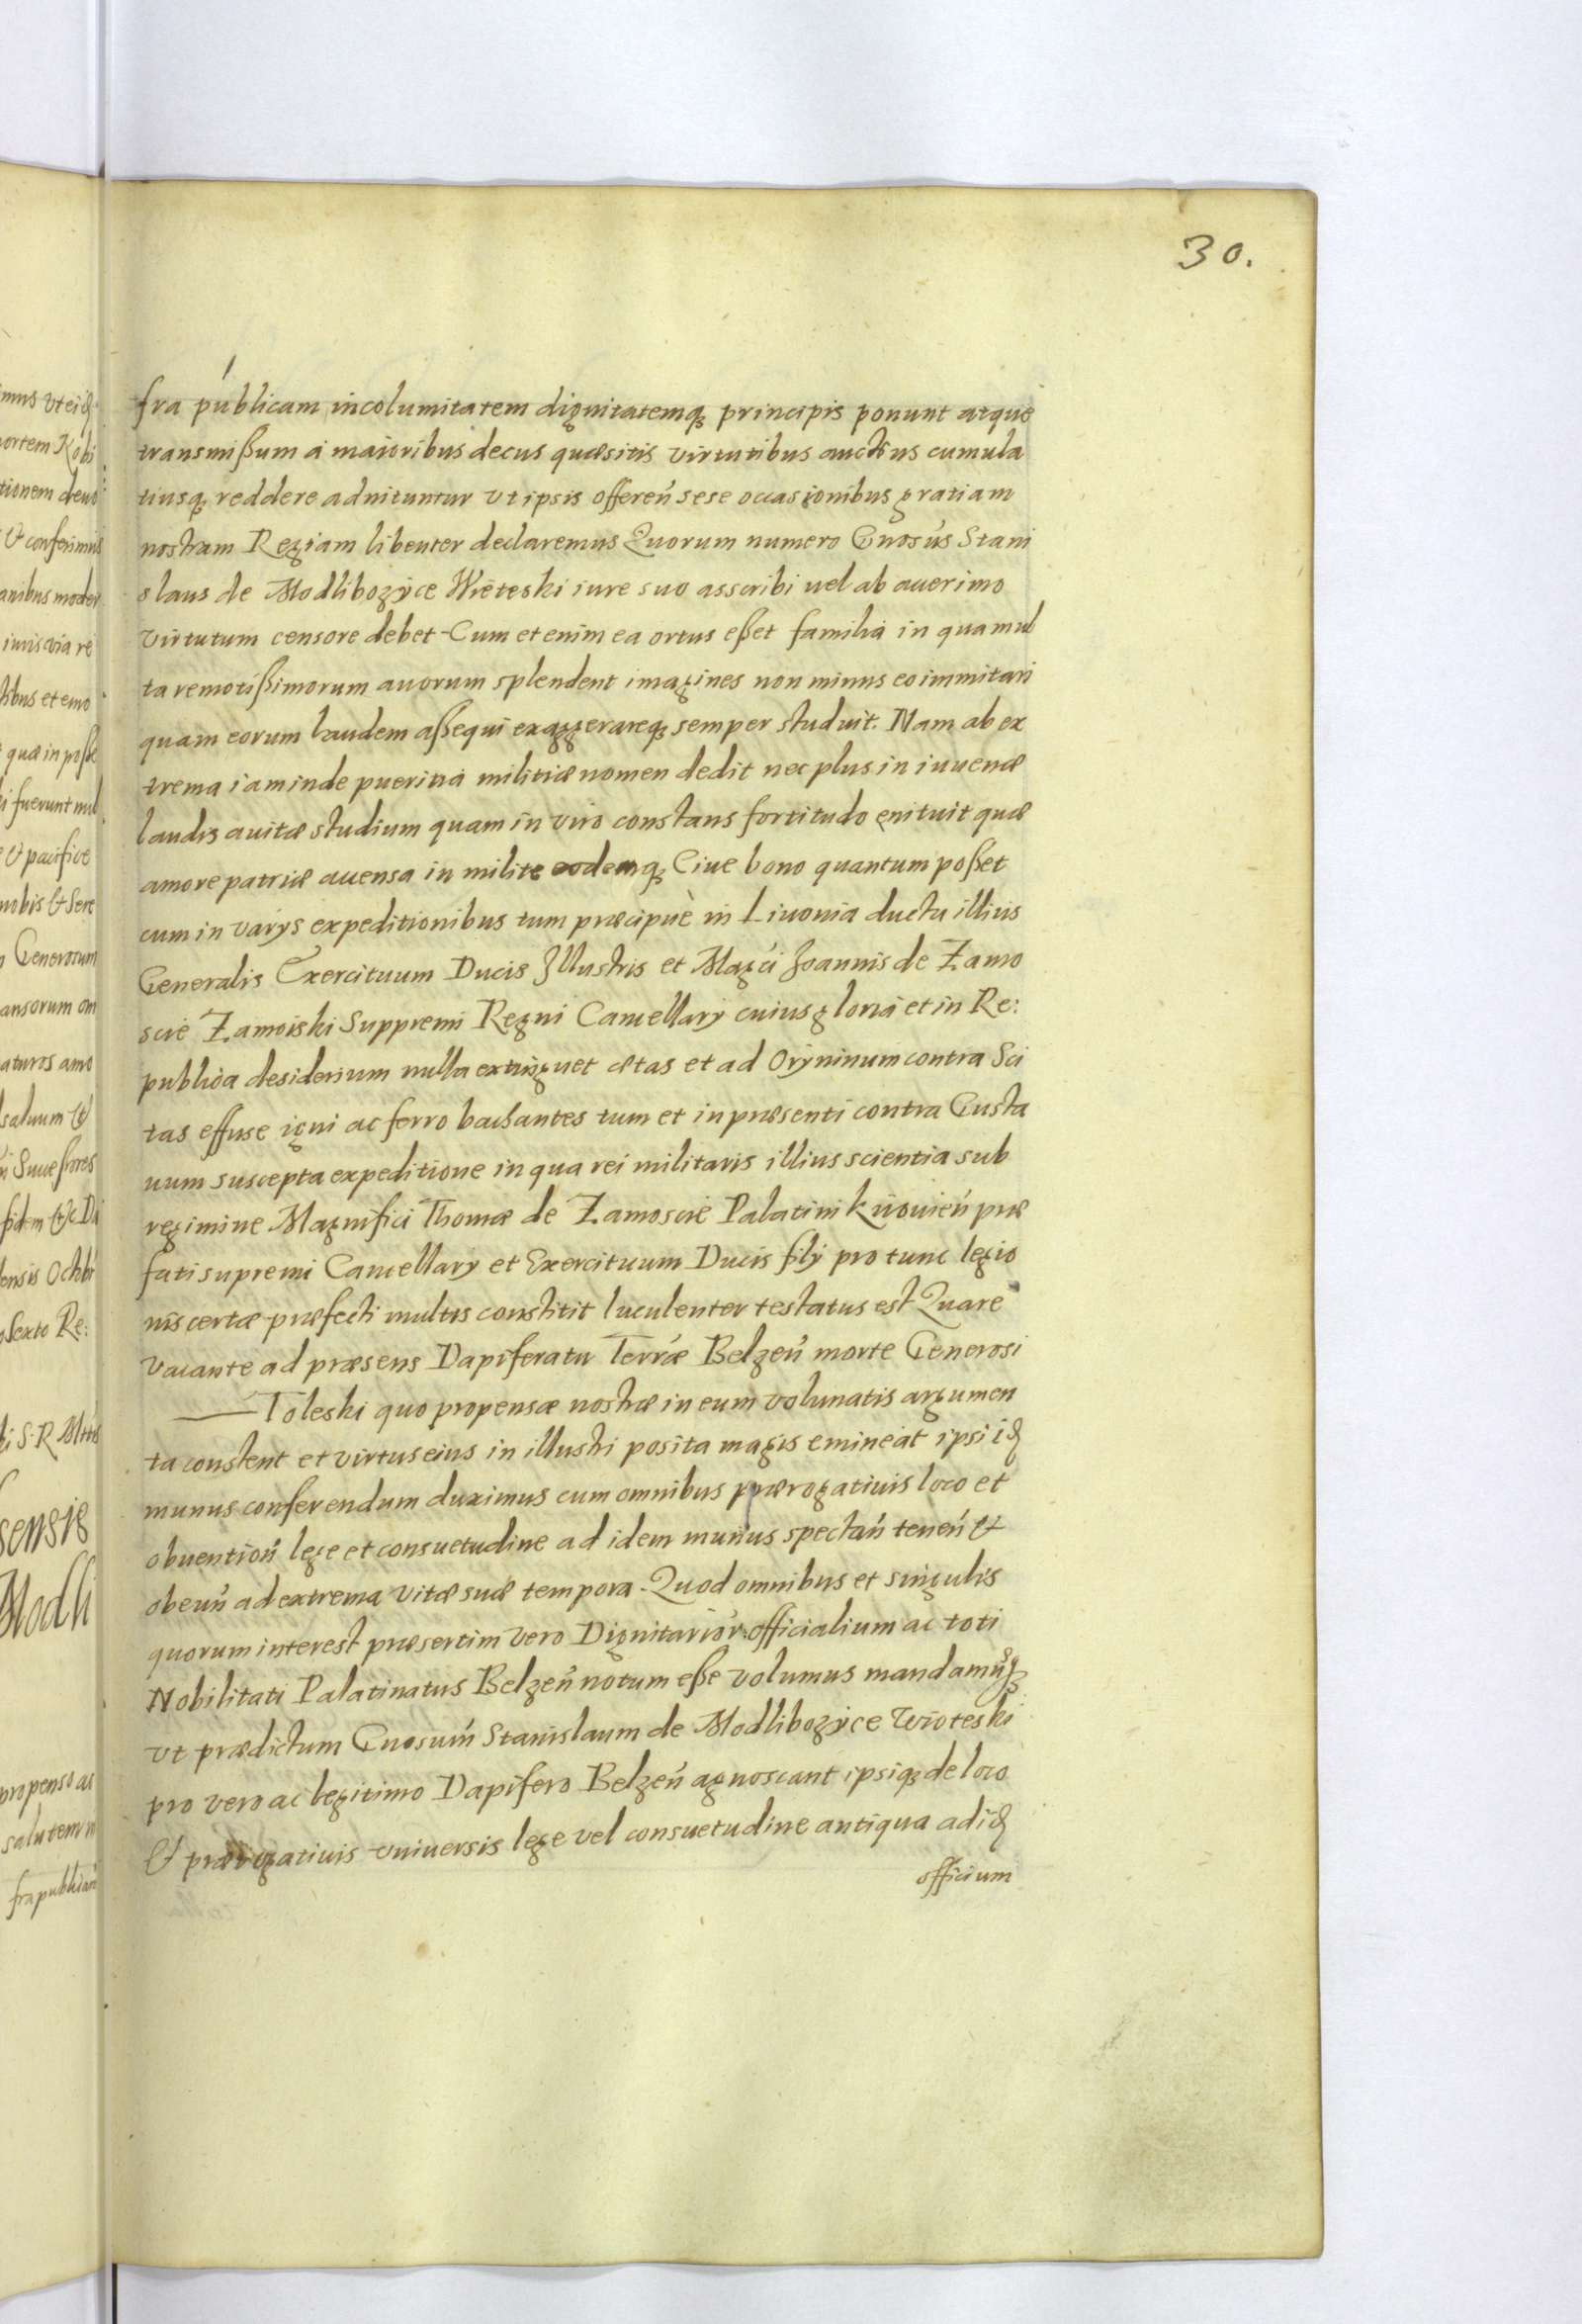 30.
fra publicam incolumitatem dignitatemq; principis ponunt atque
transmißum a maioribus decus quæsitis virtutibus auctius cumula
tiusq; reddere adnituntur vt ipsis offereń sese occasionibus gratiam
nostram Regiam libenter declaremus Quorum numero Gnosus Stani
slaus de Modlibozyce Wieteski iure suo asscribi uel ab acerimo
virtutum censore debet Cum etenim ea ortus eßet familia in qua mul
ta remotißimorum auorum splendent imagines non minus eo immitari
quam eorum laudem aßequi exaggerareq; semper studuit. Nam ab ex
trema iam inde pueritia militiæ nomen dedit nec plus in iuuenæ
laudis auitæ studium quam in viro constans fortitudo enituit quæ
amore patriæ accensa in milite eodemq; Ciue bono quantum poßet
cum in varys expeditionibus tum præcipuè in Liuonia ductu illius
Generalis Exercituum Ducis Jllustris et Magci Joannis de Zamo
scie Zamoiski Suppremi Regni Cancellary cuius gloria et in Re:
publica desiderium nulla extinguet ætas et ad Oryninum contra Sci
tas effuse igni ac ferro bachantes tum et in præsenti contra Gusta
uum suscepta expeditione in qua rei militaris illius scientia sub
regimine Magnifici Thomæ de Zamoscie Palatini Kiiouień præ
fati supremi Cancellary et Exercituum Ducis fily pro tunc legio
nis certæ præfecti multis constitit luculenter testatus est Quare
vacante ad præsens Dapiferatu Terræ Belzeń morte Generosi
Toleski quo propensæ nostræ in eum volunatis argumen
ta constent et virtus eius in illustri posita magis emineat ipsi id
munus conferendum duximus cum omnibus prærogatiuis loco et
obuention̄ lege et consuetudine ad idem munus spectań teneń &
obeuń ad extrema vitæ suæ tempora. Quod omnibus et singulis
quorum interest præsertim vero Dignitarior: officialium ac toti
Nobilitati Palatinatus Belzeń notum eße volumus mandamusq;
vt prædictum Gnosum Stanislaum de Modlibozyce Wioteski
pro vero ac legitimo Dapifero Belzeń agnoscant ipsiq; de loco
& prærogatiuis vniuersis lege vel consuetudine antiqua ad id
officium